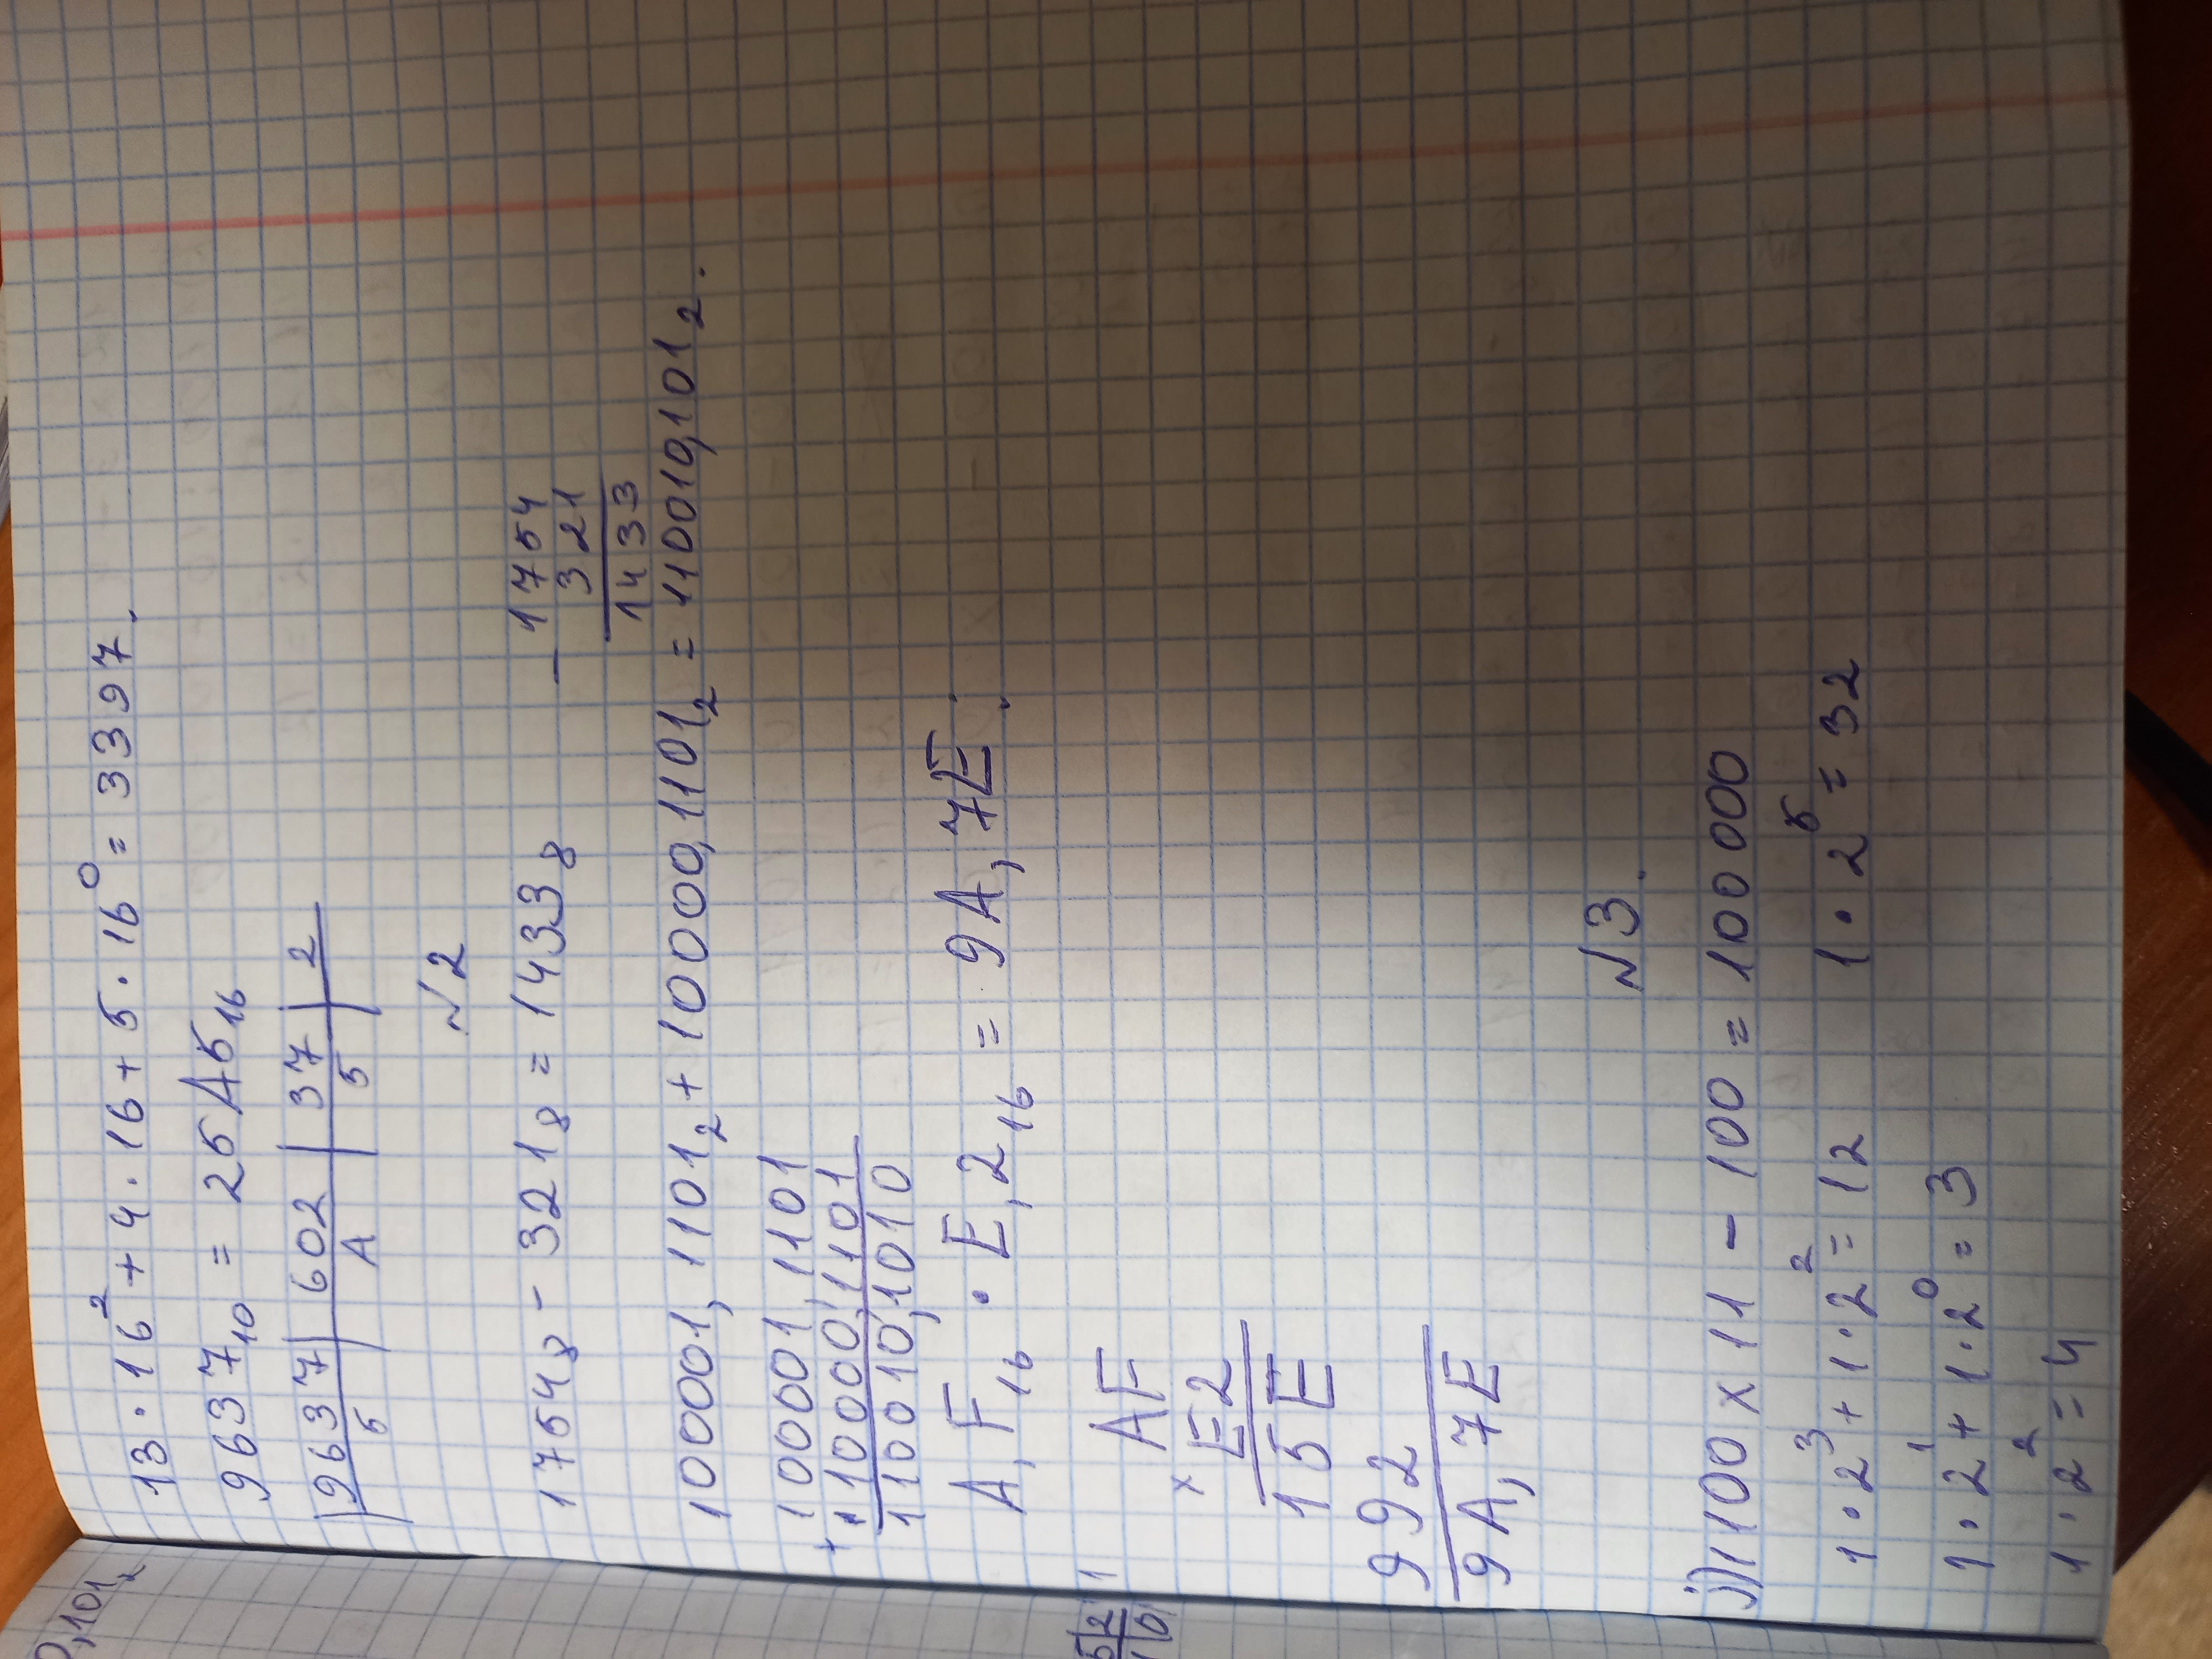 0,101₂
13 · 16² + 4 · 16 + 5 · 16⁰ = 3397.
9637₁₀ = 25A5₁₆
9637 | 602 | 37 | 2
5 | A | 5
№2
1754₈ - 321₈ = 1433₈
- 1754
321
1433
100001,1101₂ + 10000,1101₂ = 110010,101₂.
100001,1101
+ 10000,1101
110010,1010
A,F₁₆ · E,2₁₆ = 9A,7E.
5|2 1
1|0|
AF
× E2
15E
992
9A,7E
№3.
j) 1100 × 11 - 100 = 100000
1 · 2³ + 1 · 2² = 12 1 · 2⁵ = 32
1 · 2¹ + 1 · 2⁰ = 3
1 · 2² = 4